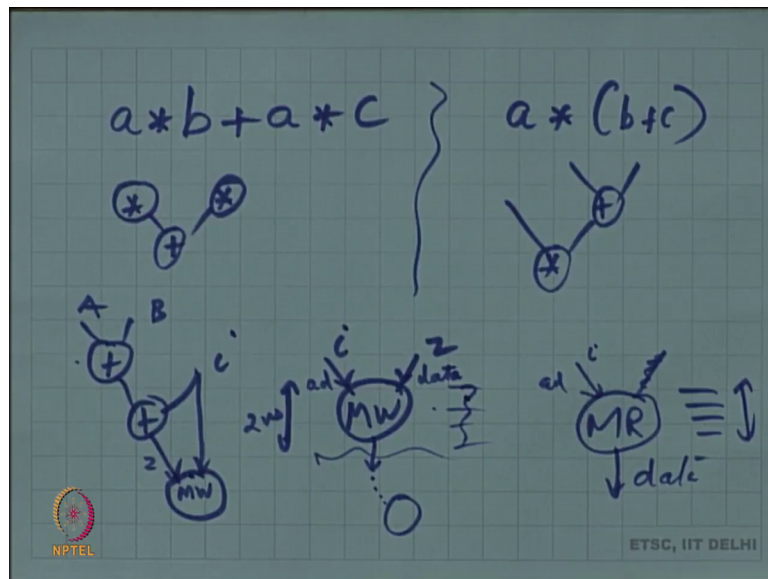 a * b + a * c
a * (b+c)
* *
+
+
*
A B
+
+
i
z
MW
i z
ad data
MW
2ns
i
ad
MR
data
NPTEL
ETSC, IIT DELHI